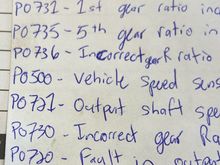 P0731 - 1st gear ratio inc
P0735 - 5th gear ratio in
P0736 - Incorrect gear R ratio
P0500 - vehicle speed sens
P0721 - Output shaft spe
P0730 - Incorrect gear Ra
P0720 - Fault in Outp